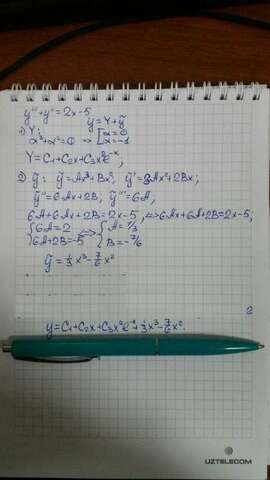 y'''+y''=2x-5
y=Y+ỹ
1) Y:
α³+α²=0 => [α=0 α=-1
Y=C₁+C₂x+C₃x²e⁻ˣ,
2) ỹ: ỹ=Ax³+Bx², ỹ'=3Ax²+2Bx;
ỹ''=6Ax+2B, ỹ'''=6A,
6A+6Ax+2B=2x-5, <=> 6Ax+6A+2B=2x-5,
{6A=2 <=> {A=1/3
6A+2B=-5 B=-7/6
ỹ=1/3x³-7/6x²
2
y=C₁+C₂x+C₃x²e⁻ˣ+1/3x³-7/6x².
UZTELECOM